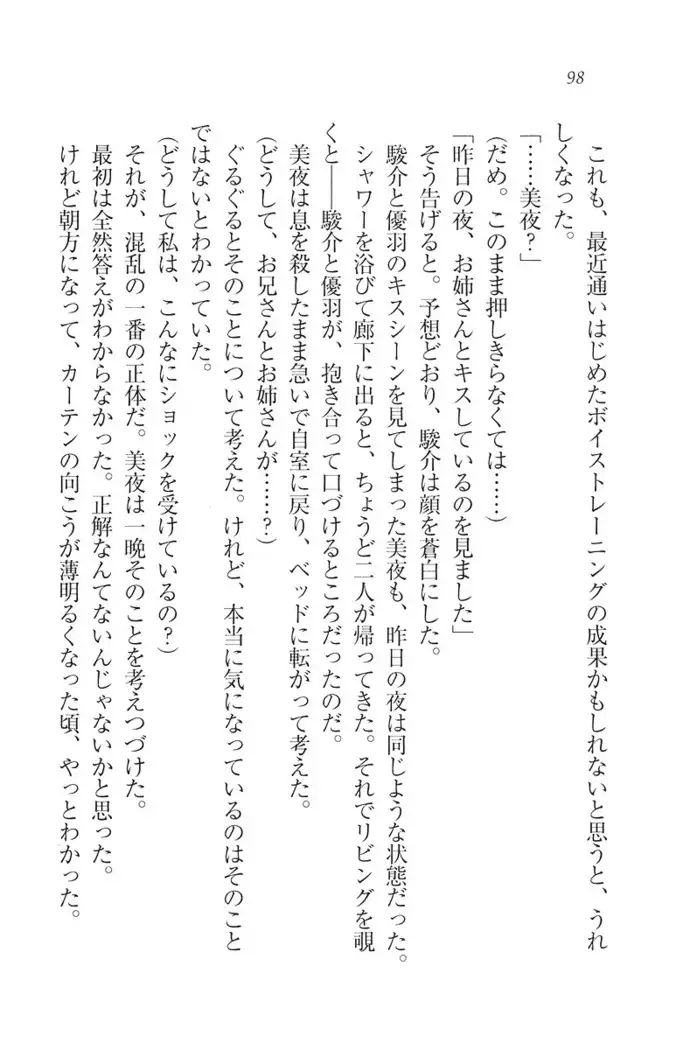 98
これも、最近通いはじめたボイストレーニングの成果かもしれないと思うと、うれ
しくなった。
「……美夜？」
（だめ。このまま押しきらなくては……）
「昨日の夜、お姉さんとキスしているのを見ました」
そう告げると。予想どおり、駿介は顔を蒼白にした。
駿介と優羽のキスシーンを見てしまった美夜も、昨日の夜は同じような状態だった。
シャワーを浴びて廊下に出ると、ちょうど二人が帰ってきた。それでリビングを覗
くと――駿介と優羽が、抱き合って口づけるところだったのだ。
美夜は息を殺したまま急いで自室に戻り、ベッドに転がって考えた。
（どうして、お兄さんとお姉さんが……？）
ぐるぐるとそのことについて考えた。けれど、本当に気になっているのはそのこと
ではないとわかっていた。
（どうして私は、こんなにショックを受けているの？）
それが、混乱の一番の正体だ。美夜は一晩そのことを考えつづけた。
最初は全然答えがわからなかった。正解なんてないんじゃないかと思った。
けれど朝方になって、カーテンの向こうが薄明るくなった頃、やっとわかった。